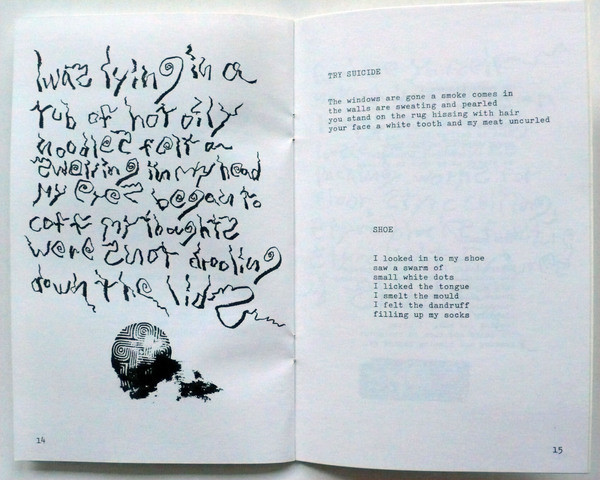 I waz lying in a
tub of hot oily
noodlez felt an
zwelling in my head
My eyez began to
coff my thoughtz
were znot drooling
down the lidz
14
TRY SUICIDE
The windows are gone a smoke comes in
the walls are sweating and pearled
you stand on the rug hissing with hair
your face a white tooth and my meat uncurled
SHOE
I looked in to my shoe
saw a swarm of
small white dots
I licked the tongue
I smelt the mould
I felt the dandruff
filling up my socks
15